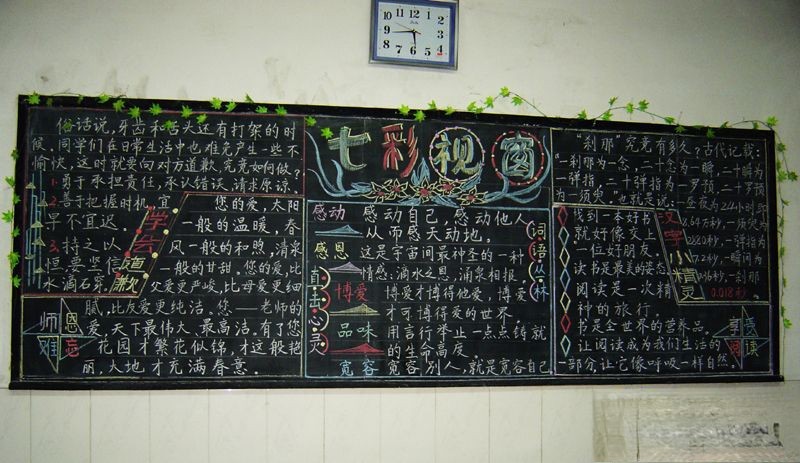 俗话说,牙齿和舌头还有打架的时
候,同学们在日常生活中也难免产生一些不
愉快,这时就要向对方道歉,究竟如何做?
1.勇于承担责任,承认错误,请求原谅。
2.善于把握时机,宜
早不宜迟。
3.持之以
恒,要坚信
水滴石穿。
学会
道歉
您的爱,太阳
一般的温暖,春
风一般的和煦,清泉
一般的甘甜。您的爱,比
父爱更严峻,比母爱更细
腻,比友爱更纯洁。您——老师的
爱,天下最伟大、最高洁,有了您
花园才繁花似锦,才这般艳
丽,大地才充满春意。
师恩
难忘
七彩视窗
感动 感动自己,感动他人,
从而感天动地。
感恩 这是宇宙间最神圣的一种
情感:滴水之恩,涌泉相报
博爱 博爱才博得他爱,博爱
才可博得爱的世界
品味 用言行举止一点点铸就
的生命高度。
宽容 宽容别人,就是宽容自己。
直击心灵
词语丛林
“刹那”究竟有多久?古代记载:
一刹那为一念,二十念为一瞬,二十瞬为
一弹指,二十弹指为一罗预,二十罗预
为一须臾,也就是说:一昼夜为24小时即
8.64万秒,一须臾为
2880秒,一弹指为
7.2秒,一瞬间为
0.36秒,一刹那
0.018秒。
汉字小精灵
找到一本好书
就好像交上
一位好朋友
读书是最美的姿态
阅读是一次精
神的旅行。
书是全世界的营养品。
让阅读成为我们生活的
一部分,让它像呼吸一样自然。
享受
阅读
12
1
2
3
4
5
6
7
8
9
10
11